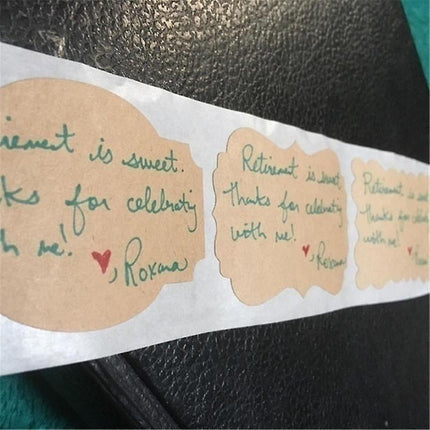 irement is sweet.
ks for celebrating
h me!
, Roxana
Retirement is sweet.
Thanks for celebrating
with me!
, Roxana
Retirement is sweet
Thanks for
with me!